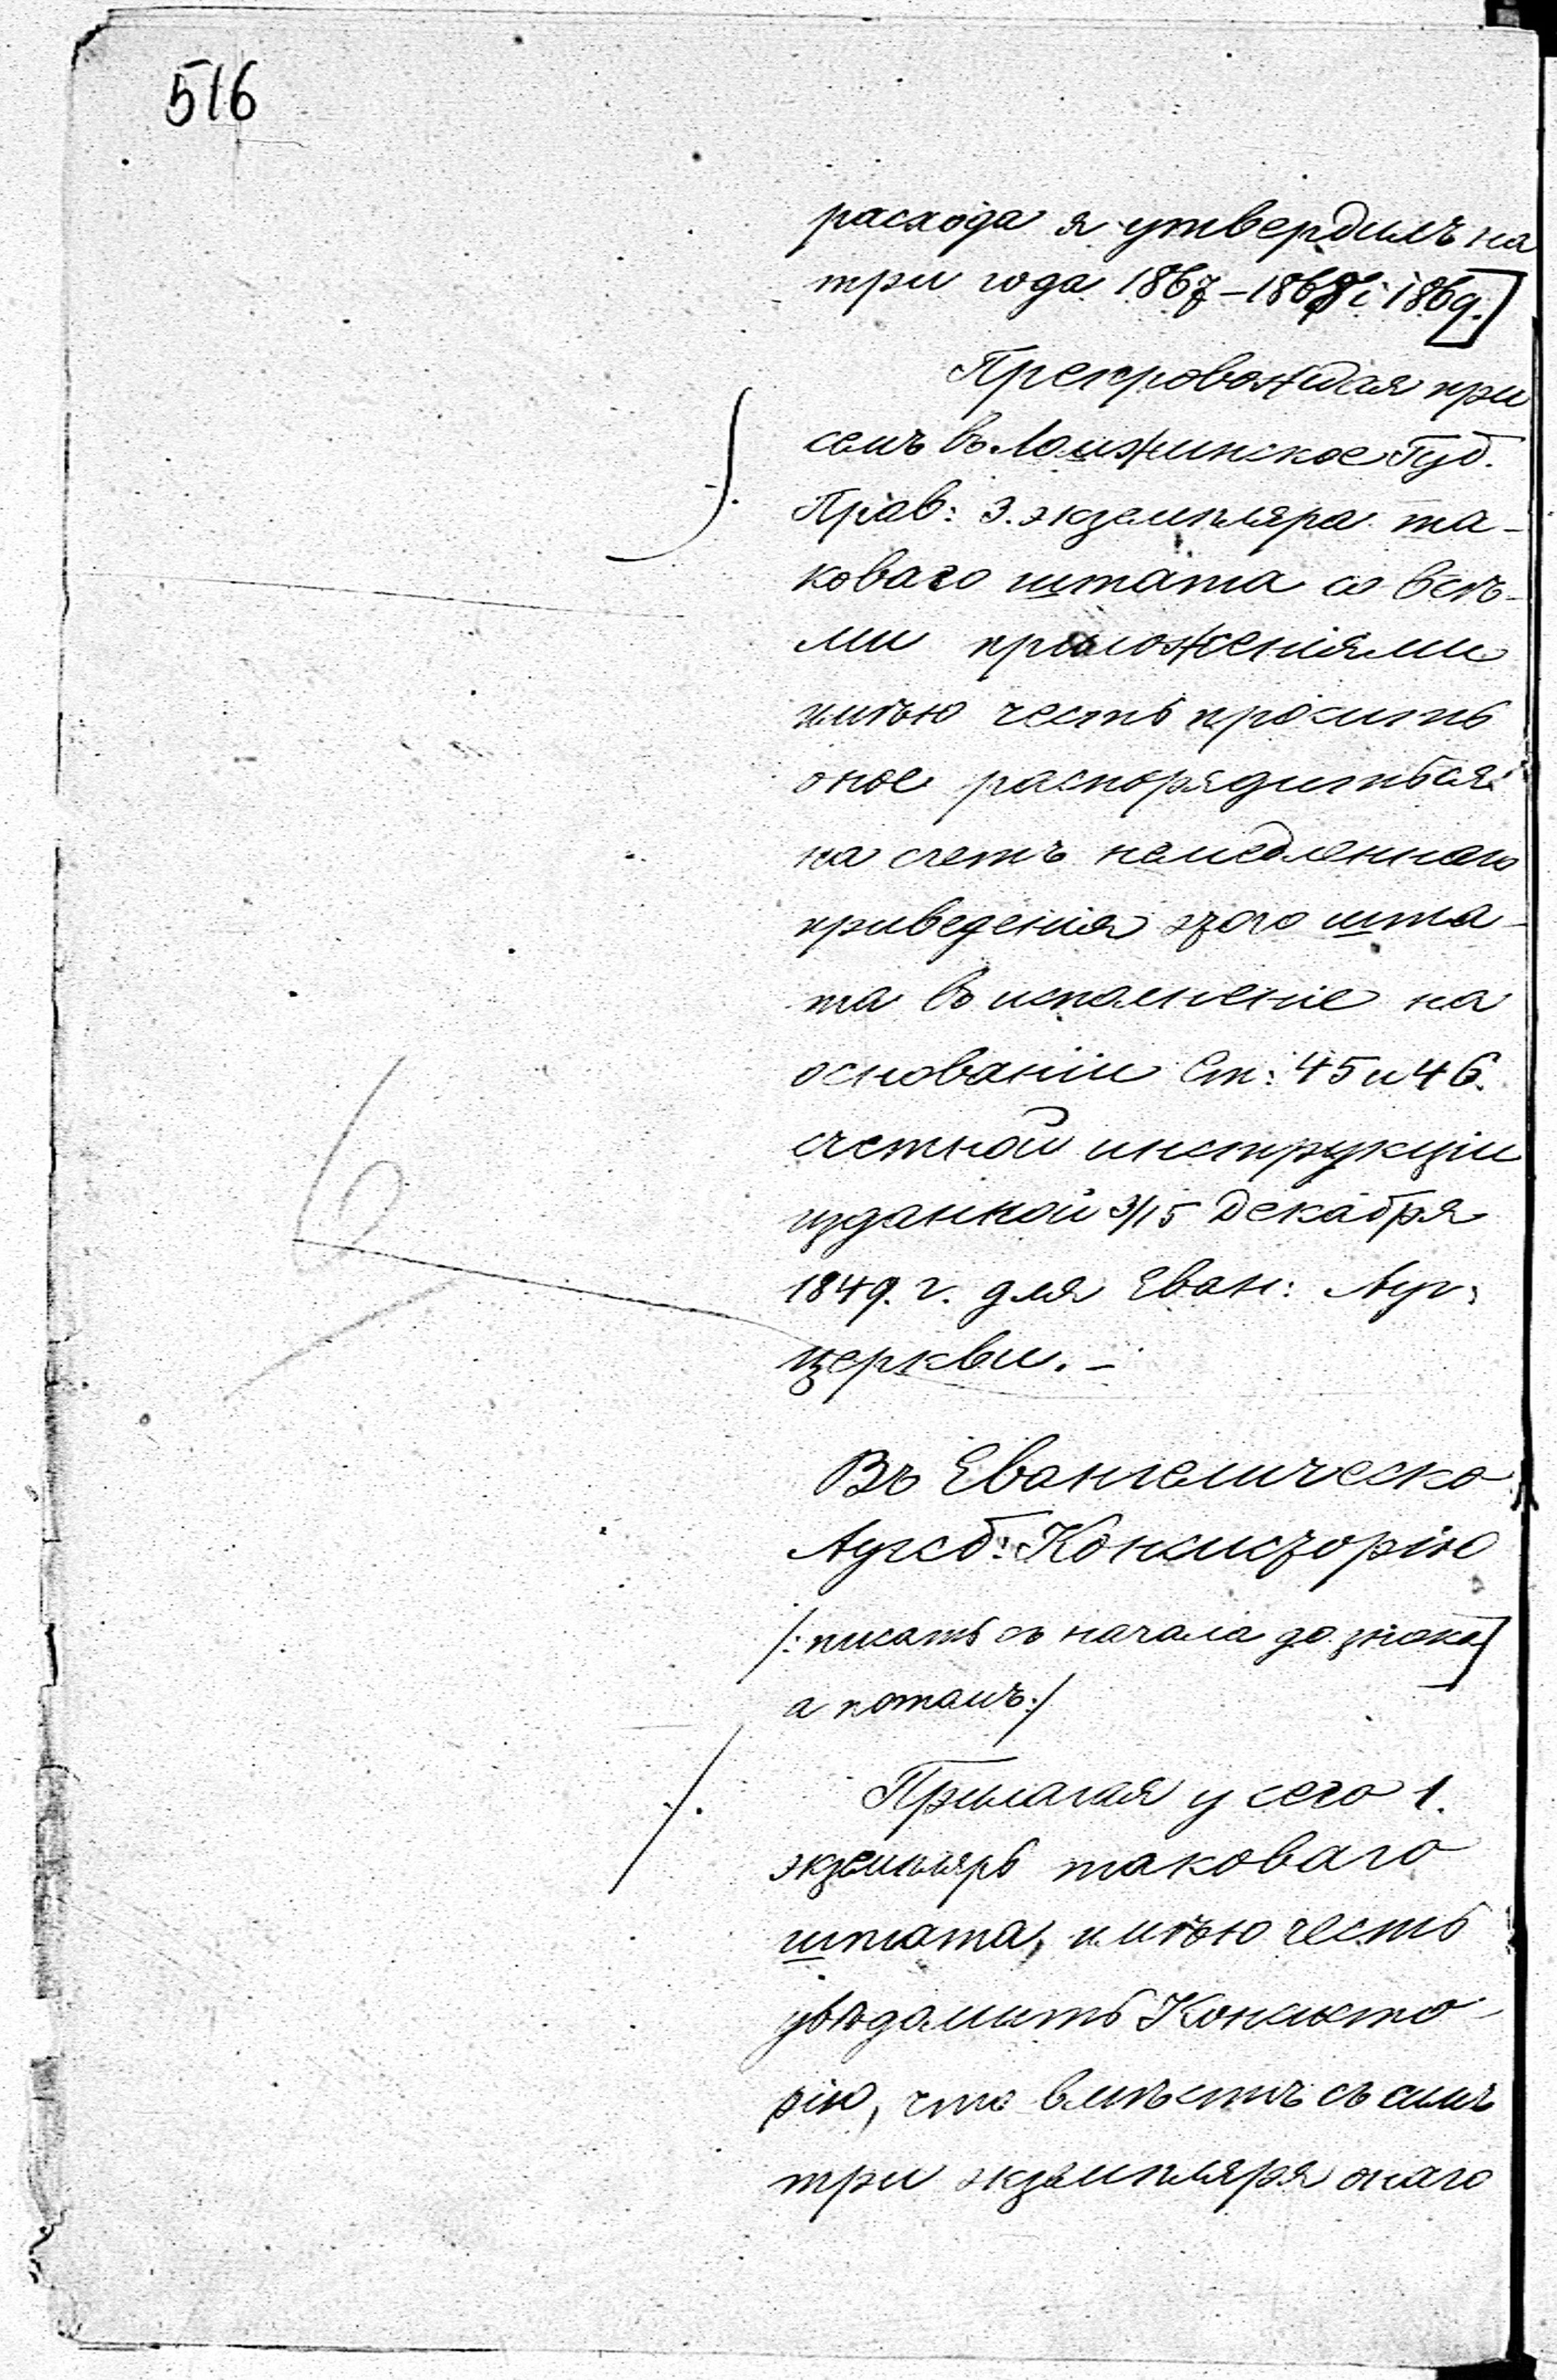 516
расхода я утвердилъ на
три года 1867–1868 і 1869.]
Препровождая при
семъ въ Ломжинское Губ.
Прав: 3. экземпляра та-
коваго штата со всѣ-
ми приложеніями
имѣю честь просить
оное распорядиться
на счетъ немедленнаго
приведенія этого шта-
та въ исполненіе на
основаніи Ст: 45 и 46.
счетной инструкціи
изданной 3/15 Декабря
1849. г. для Еван: Ауг:
церкви. –
Въ Евангелическо
Аугсб: Консисторію
/: писать съ начала до знака ]
а потомъ :/
Прилагая у сего 1.
экземпляръ таковаго
штата, имѣю честь
увѣдомить Консисто-
рію, что вмѣстѣ съ симъ
три экземпляра онаго